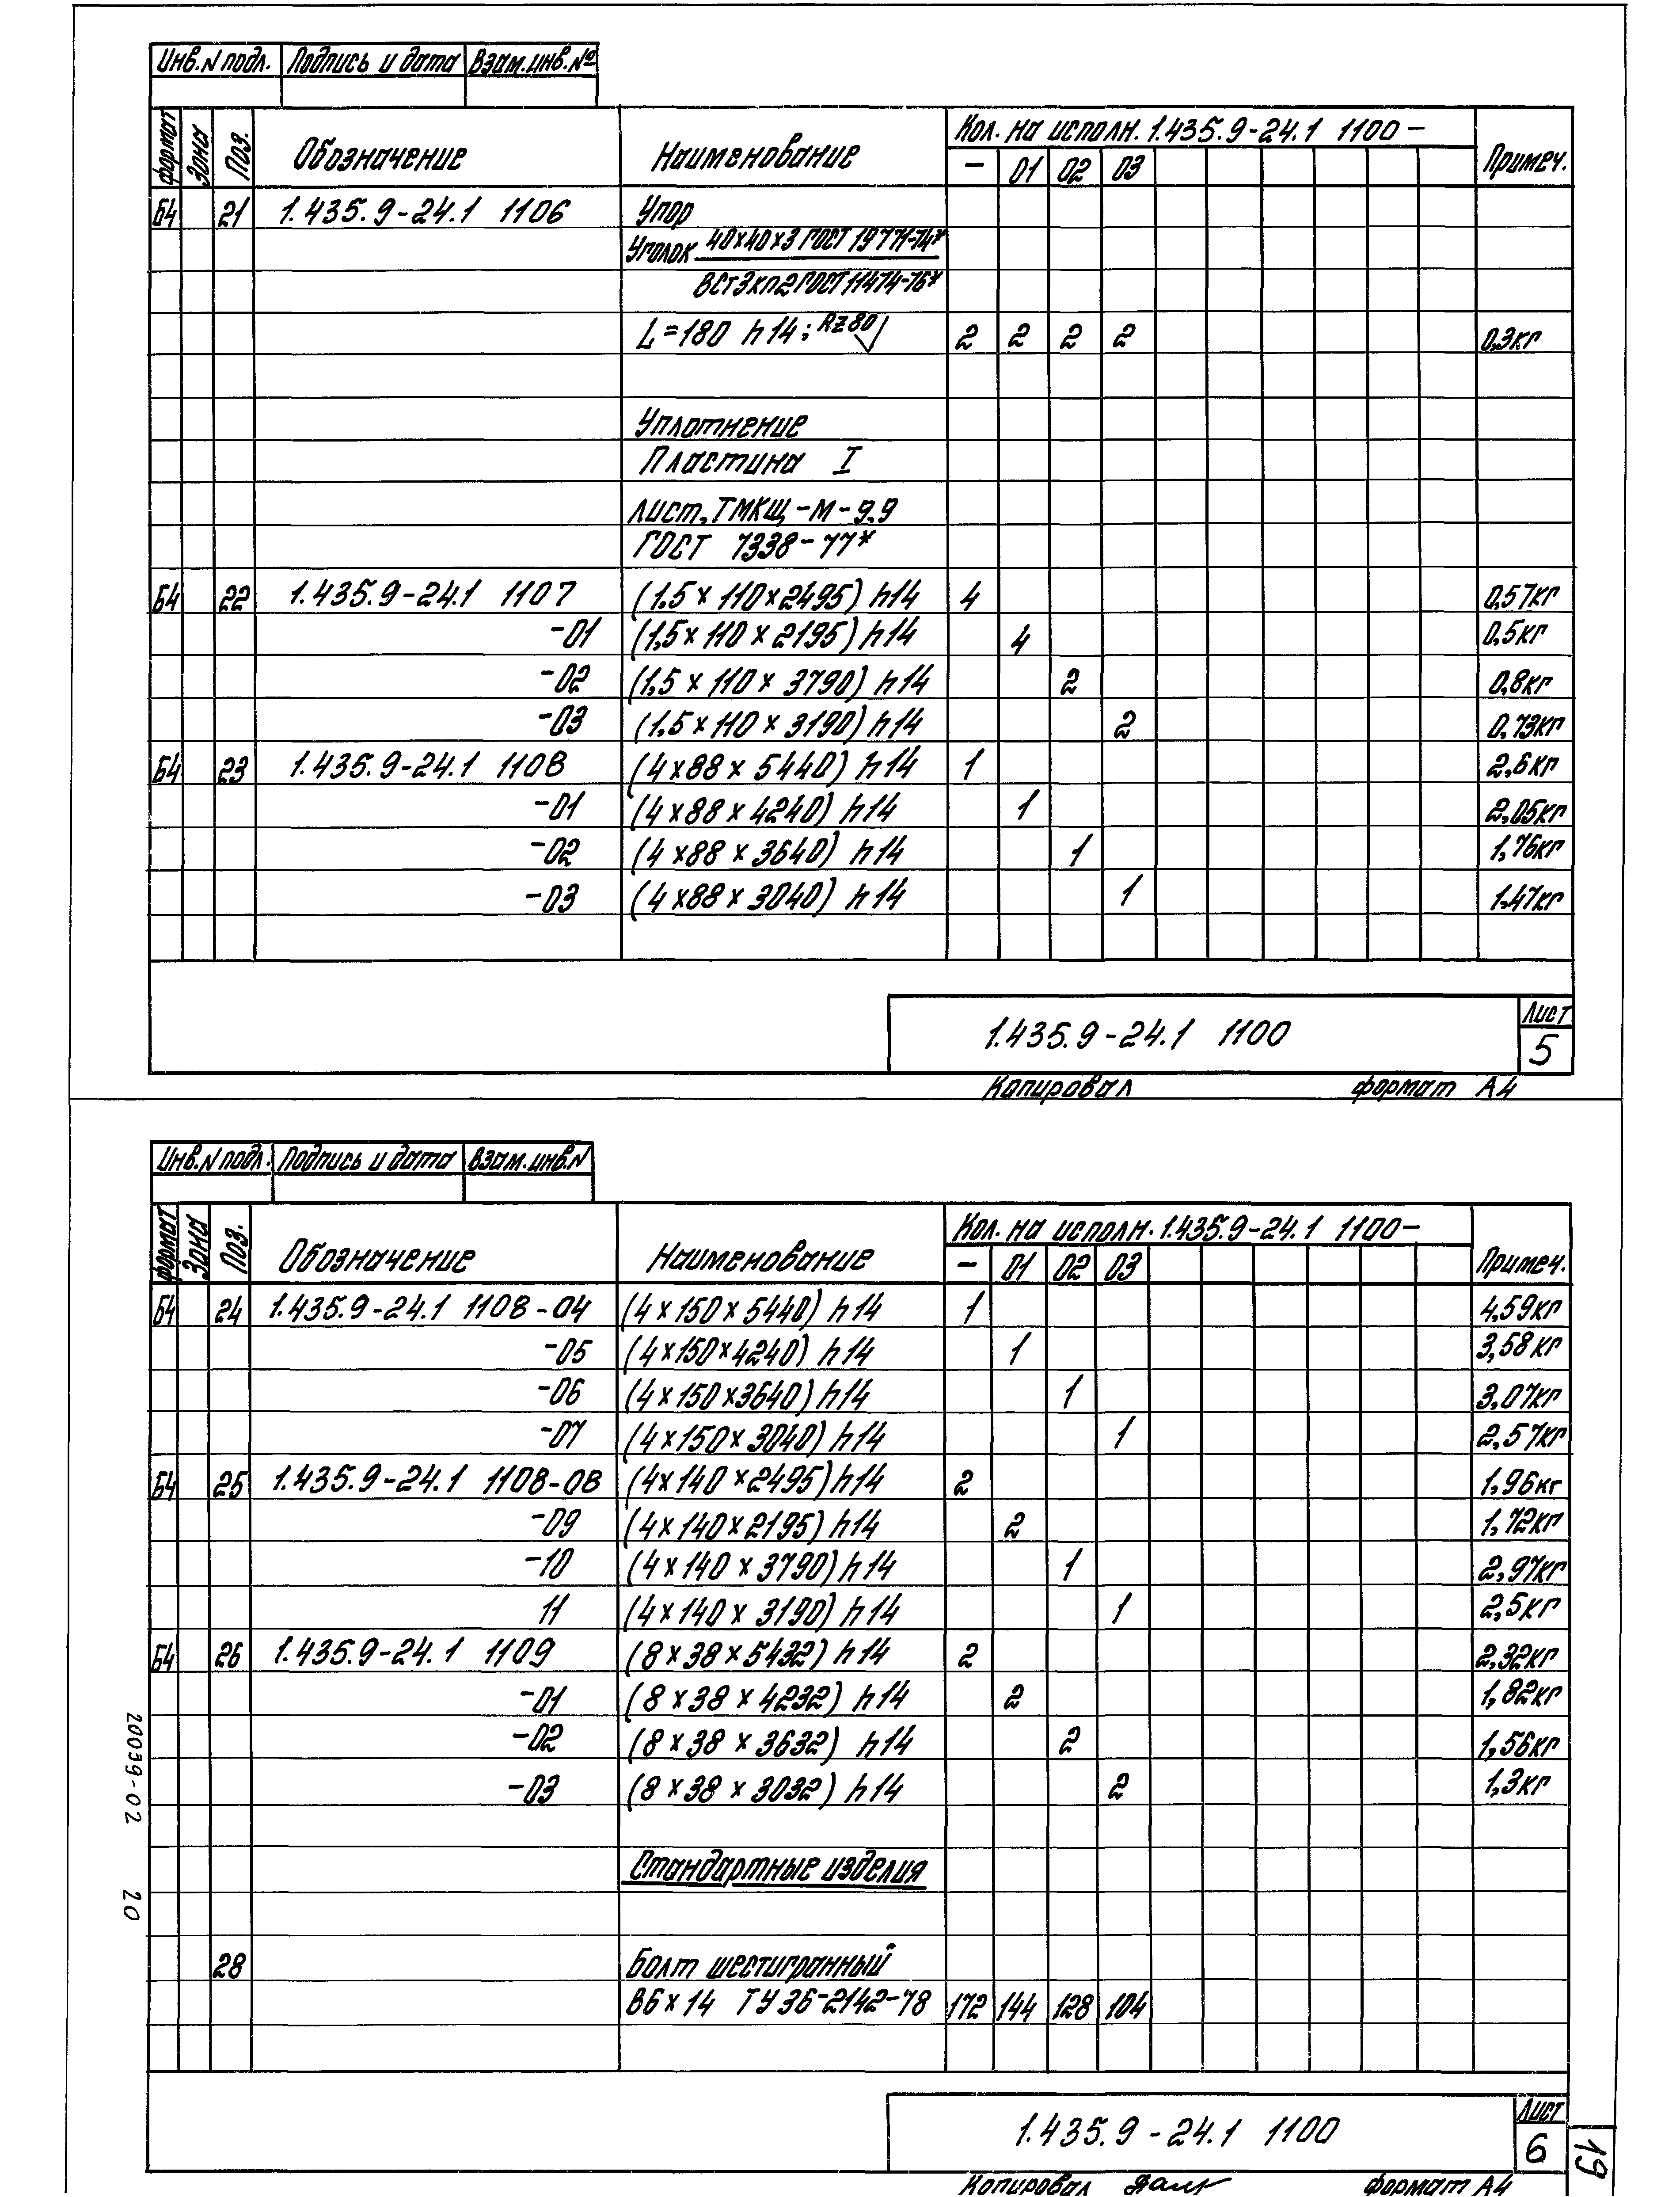 Инв.N подл. Подпись и дата Взам.инв.№
формат Зона Поз. Обозначение Наименование Кол. на исполн. 1.435.9-24.1 1100- Примеч.
- 01 02 03
Б4 21 1.435.9-24.1 1106 Упор
Уголок 40×40×3 ГОСТ 19771-74*
ВСт3кп2 ГОСТ 11474-76*
L=180 h14; Rz80 2 2 2 2 0,3кг
Уплотнение
Пластина I
лист, ТМКЩ-М-9,9
ГОСТ 7338-77*
Б4 22 1.435.9-24.1 1107 (1.5×110×2495) h14 4 0,57кг
-01 (1,5×110×2195) h14 4 0,5кг
-02 (1,5×110×3790) h14 2 0,8кг
-03 (1.5×110×3190) h14 2 0,73кг
Б4 23 1.435.9-24.1 1108 (4×88×5440) h14 1 2,6кг
-01 (4×88×4240) h14 1 2,05кг
-02 (4×88×3640) h14 1 1,76кг
-03 (4×88×3040) h14 1 1.47кг
1.435.9-24.1 1100 Лист
5
Копировал формат А4
Инв.N подл. Подпись и дата Взам.инв.N
формат Зона Поз. Обозначение Наименование Кол. на исполн. 1.435.9-24.1 1100- Примеч.
- 01 02 03
Б4 24 1.435.9-24.1 1108-04 (4×150×5440) h14 1 4,59кг
-05 (4×150×4240) h14 1 3,58кг
-06 (4×150×3640) h14 1 3,07кг
-07 (4×150×3040) h14 1 2,57кг
Б4 25 1.435.9-24.1 1108-08 (4×140×2495) h14 2 1,96кг
-09 (4×140×2195) h14 2 1,72кг
-10 (4×140×3790) h14 1 2,97кг
11 (4×140×3190) h14 1 2,5кг
Б4 26 1.435.9-24.1 1109 (8×38×5432) h14 2 2,32кг
-01 (8×38×4232) h14 2 1,82кг
-02 (8×38×3632) h14 2 1,56кг
-03 (8×38×3032) h14 2 1,3кг
Стандартные изделия
28 Болт шестигранный
В6×14 ТУ36-2142-78 172 144 128 104
20039-02 20
1.435.9-24.1 1100 Лист
6
19
Копировал формат А4